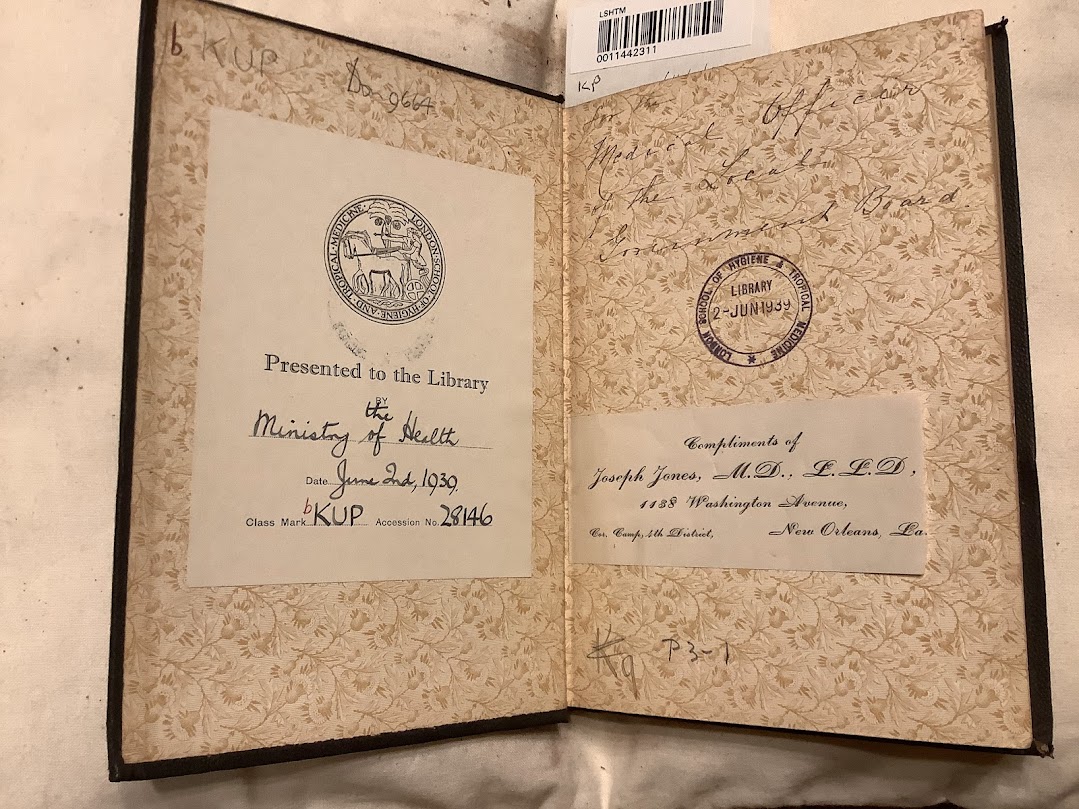 b KUP
Do-9664
LONDON·SCHOOL·OF·HYGIENE·AND·TROPICAL·MEDICINE·
Presented to the Library
BY
the
Ministry of Health
Date June 2nd, 1939.
Class Mark bKUP Accession No. 28146
LSHTM
0011442311
KP
for the
Medical Officer
of the Local
Government Board.
LONDON SCHOOL OF HYGIENE & TROPICAL MEDICINE
LIBRARY
2-JUN1939
*
Compliments of
Joseph Jones, M.D., L.L.D,
1138 Washington Avenue,
Cor. Camp, 4th District, New Orleans, La.
Kq P3-1